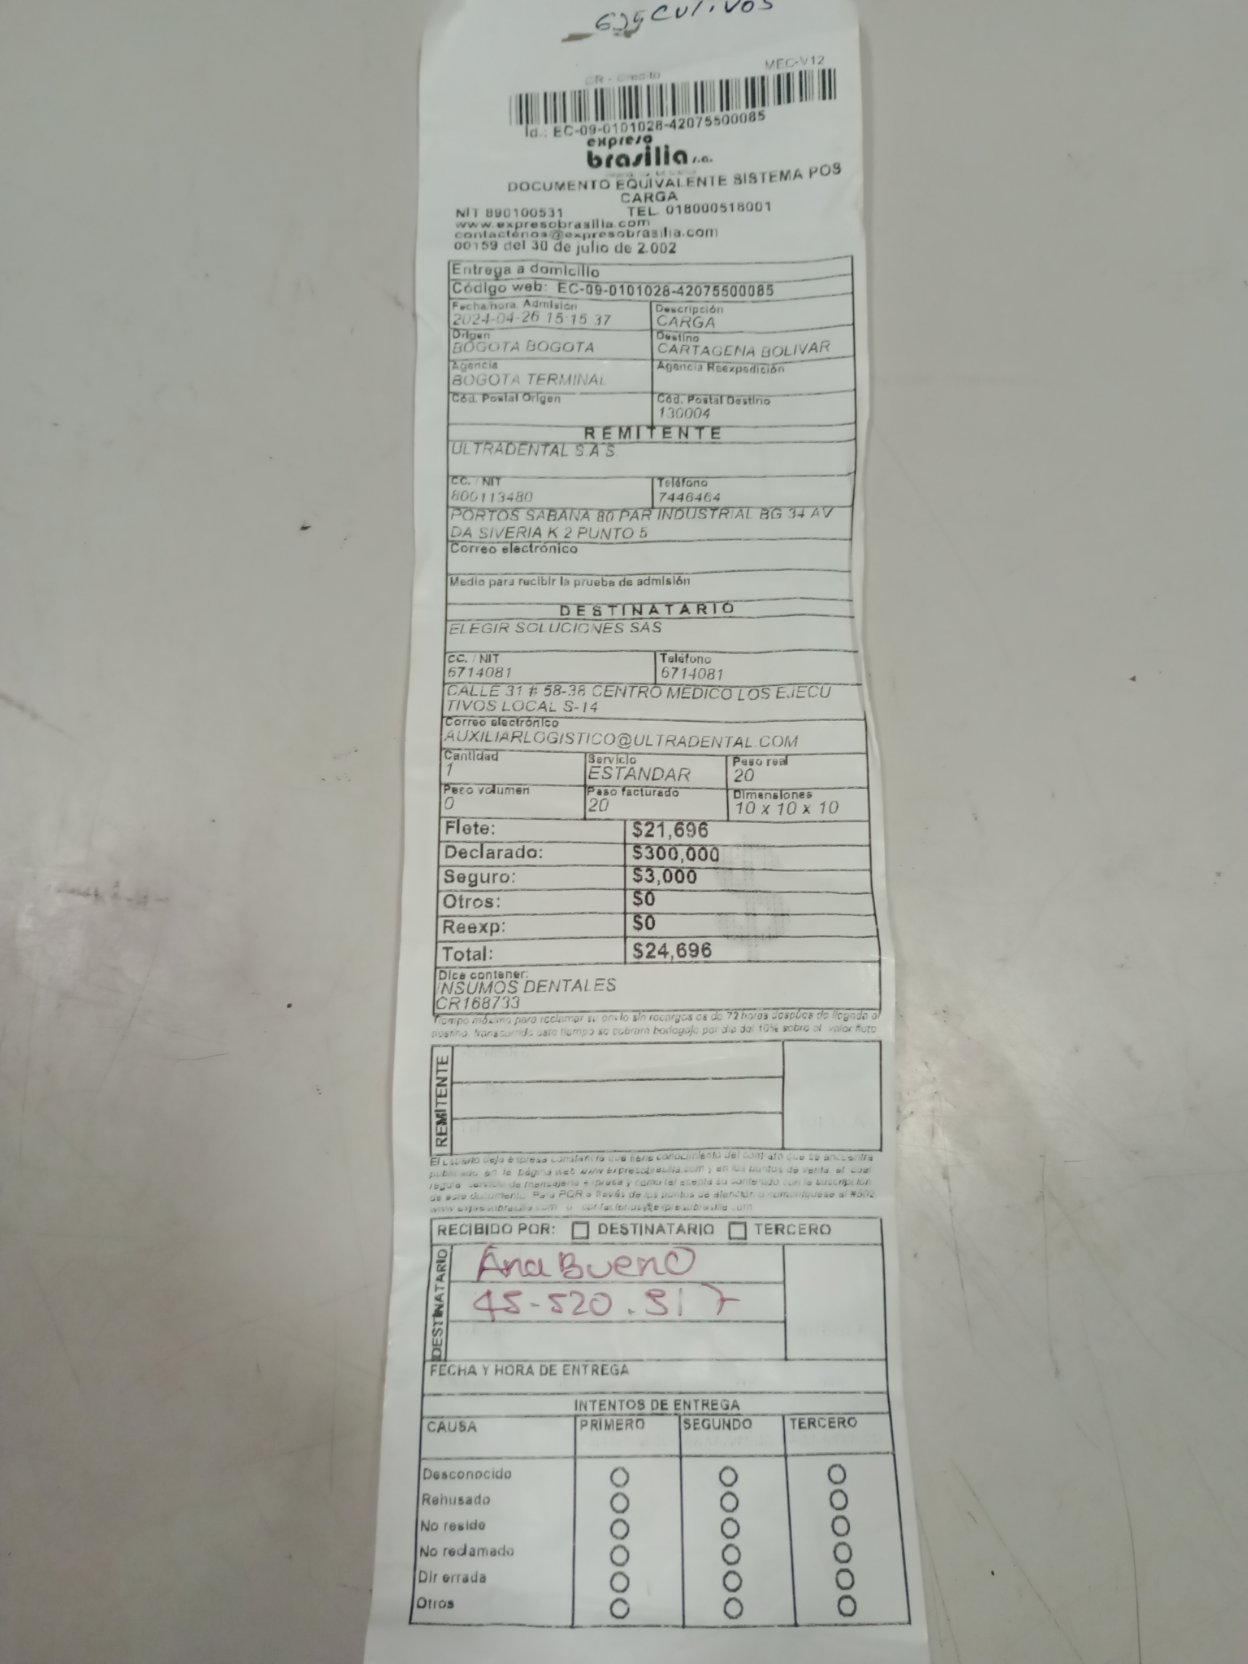 CR - Credito
MEC-V12
Id.: EC-09-0101028-42075500085
expreso
brasilia s.a.
DOCUMENTO EQUIVALENTE SISTEMA POS
CARGA
NIT 890100531 TEL. 018000518001
www.expresobrasilia.com
contactenos@expresobrasilia.com
00159 del 30 de julio de 2.002
Entrega a domicilio
Código web: EC-09-0101028-42075500085
Fecha/hora. Admisión Descripción
2024-04-26 15:15:37 CARGA
Origen Destino
BOGOTA BOGOTA CARTAGENA BOLIVAR
Agencia Agencia Reexpedición
BOGOTA TERMINAL
Cód. Postal Origen Cód. Postal Destino
130004
REMITENTE
ULTRADENTAL S.A.S.
CC. / NIT Teléfono
800113480 7446464
PORTOS SABANA 80 PAR INDUSTRIAL BG 34 AV
DA SIVERIA K 2 PUNTO 5
Correo electrónico
Medio para recibir la prueba de admisión
DESTINATARIO
ELEGIR SOLUCIONES SAS
CC. / NIT Teléfono
6714081 6714081
CALLE 31 # 58-38 CENTRO MEDICO LOS EJECU
TIVOS LOCAL S-14
Correo electrónico
AUXILIARLOGISTICO@ULTRADENTAL.COM
Cantidad Servicio Peso real
1 ESTANDAR 20
Peso volumen Peso facturado Dimensiones
0 20 10 x 10 x 10
Flete: $21,696
Declarado: $300,000
Seguro: $3,000
Otros: $0
Reexp: $0
Total: $24,696
Dice contener:
INSUMOS DENTALES
CR168733
Tiempo máximo para reclamar su envío sin recargos es de 72 horas después de llegada al
destino, transcurrido este tiempo se cobrara bodegaje por día del 10% sobre el valor flete
REMITENTE
El usuario deja expresa constancia que tiene conocimiento del contrato que se encuentra
publicado en la página web www.expresobrasilia.com y en los puntos de venta, el cual
regula servicio de mensajería expresa y como tal acepta su contenido con la suscripción
de este documento. Para PQR a través de los puntos de atención o comuníquese al #502
www.expresobrasilia.com o contactenos@expresobrasilia.com
RECIBIDO POR: DESTINATARIO TERCERO
DESTINATARIO
Ana Bueno
45-520.317
FECHA Y HORA DE ENTREGA
INTENTOS DE ENTREGA
CAUSA PRIMERO SEGUNDO TERCERO
Desconocido
Rehusado
No reside
No reclamado
Dir errada
Otros